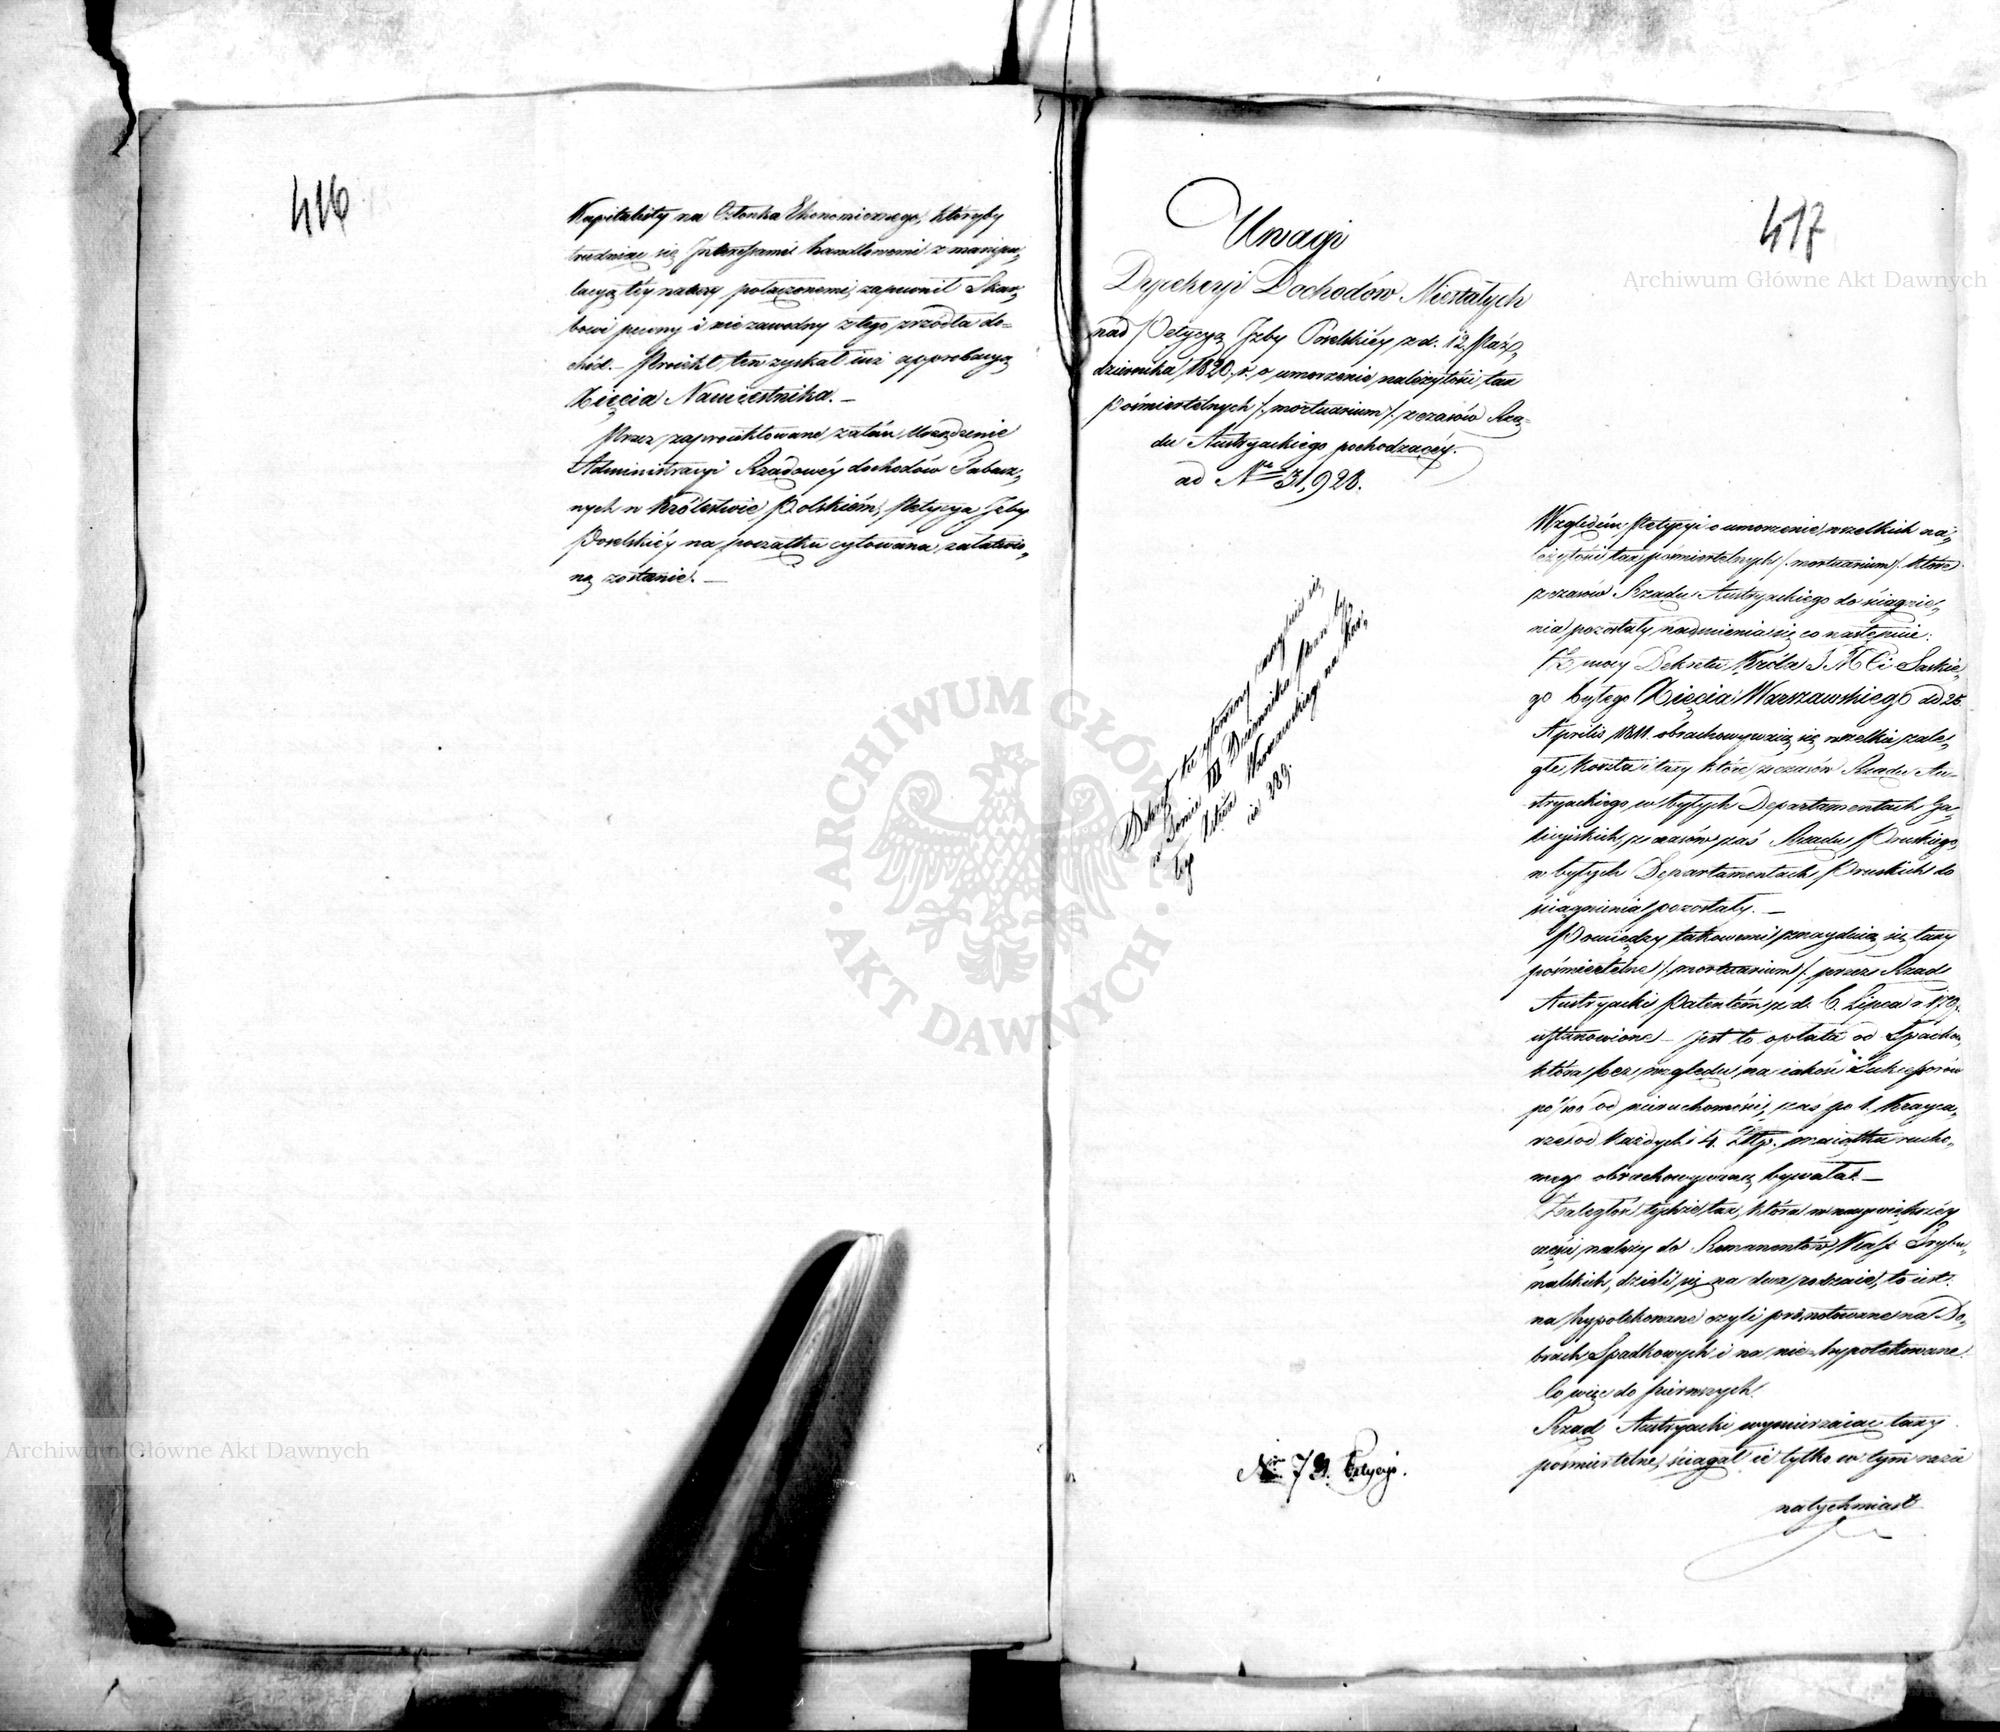 416
Kapitalisty na Członka Ekonomicznego, któryby
trudniąc się Interessami handlowemi z manipu-
lacyą téy natury połączonemi, zapewnił Skar-
bowi pewny i niezawodny z tego zrzódła do-
chód. — Proiekt ten zyskał iuż approbacyą
Xięcia Namiestnika. —
Przez zaproiektowane zatém Urządzenie
Administracyi Rządowéy dochodów Tabacz-
nych w Królestwie Polskiém, Petycya Izby
Poselskiéy na początku cytowana, załatwio-
ną zostanie. —
417
Uwagi
Dyrekcyi Dochodów Niestałych
nad Petycyą Izby Poselskiéy z d. 12. Paź-
dziernika 1820. r. o umorzenie należytości tax
pośmiertelnych /. mortuarium /. z czasów Rzą-
du Austryackiego pochodzącéy.
ad Nrum 31,928.
Względem Petycyi o umorzenie wszelkich na-
leżytości tax pośmiertelnych /. mortuarium /. które
z czasów Rządu Austryackiego do ściągnie-
nia pozostały nadmienia się co następuie:
Z mocy Dekretu Króla J M Ci Saskie-
go byłego Xięcia Warszawskiego dd 25.
Aprilis 1811. obrachowywaią się wszelkie zale-
głe Koszta i taxy które z czasów Rządu Au-
stryackiego w byłych Departamentach Ga-
licyiskich, z czasów zaś Rządu Pruskiego,
w byłych Departamentach Pruskich do
ściągnienia pozostały. —
Pomiędzy takowemi znayduią się taxy
pośmiertelne /. mortuarium /. przez Rząd
Austryacki Patentem z d. 6. Lipca
ustanowione — jest to opłata od
która bez względu na iakość Sukcessorów
po od nieruchomości, zaś po 1. Krayca-
rze od każdych 4. Złtp. maiątku rucho-
mego obrachowywaną bywała. —
Zaległość tychże tax, która w naywiększéy
części należy do Remanentów Kass Trybu-
nalskich, dzieli się na dwa rodzaie, to iest:
na hypotekowane czyli prenotowane na Do-
brach Spadkowych i na nie-hypotekowane.
Co więc do pierwszych.
Rząd Austryacki wymierzaiąc taxy
pośmiertelne, ściągał ie tylko w tym razie
natychmiast
Dekret tu cytowany znayduie się
w Tomie III Dziennika Praw by-
łego Xstwa Warszawskiego na kar-
cie 389.
Nr 73. Petycyi.
Archiwum Główne Akt Dawnych
Archiwum Główne Akt Dawnych
ARCHIWUM GŁÓWNE
AKT DAWNYCH